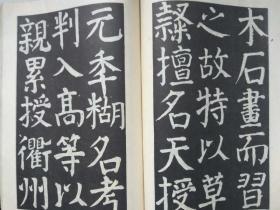 木石畫而習
之故特以草
隸擅名天授
元秊糊名考
判入高等以
親累授衢州